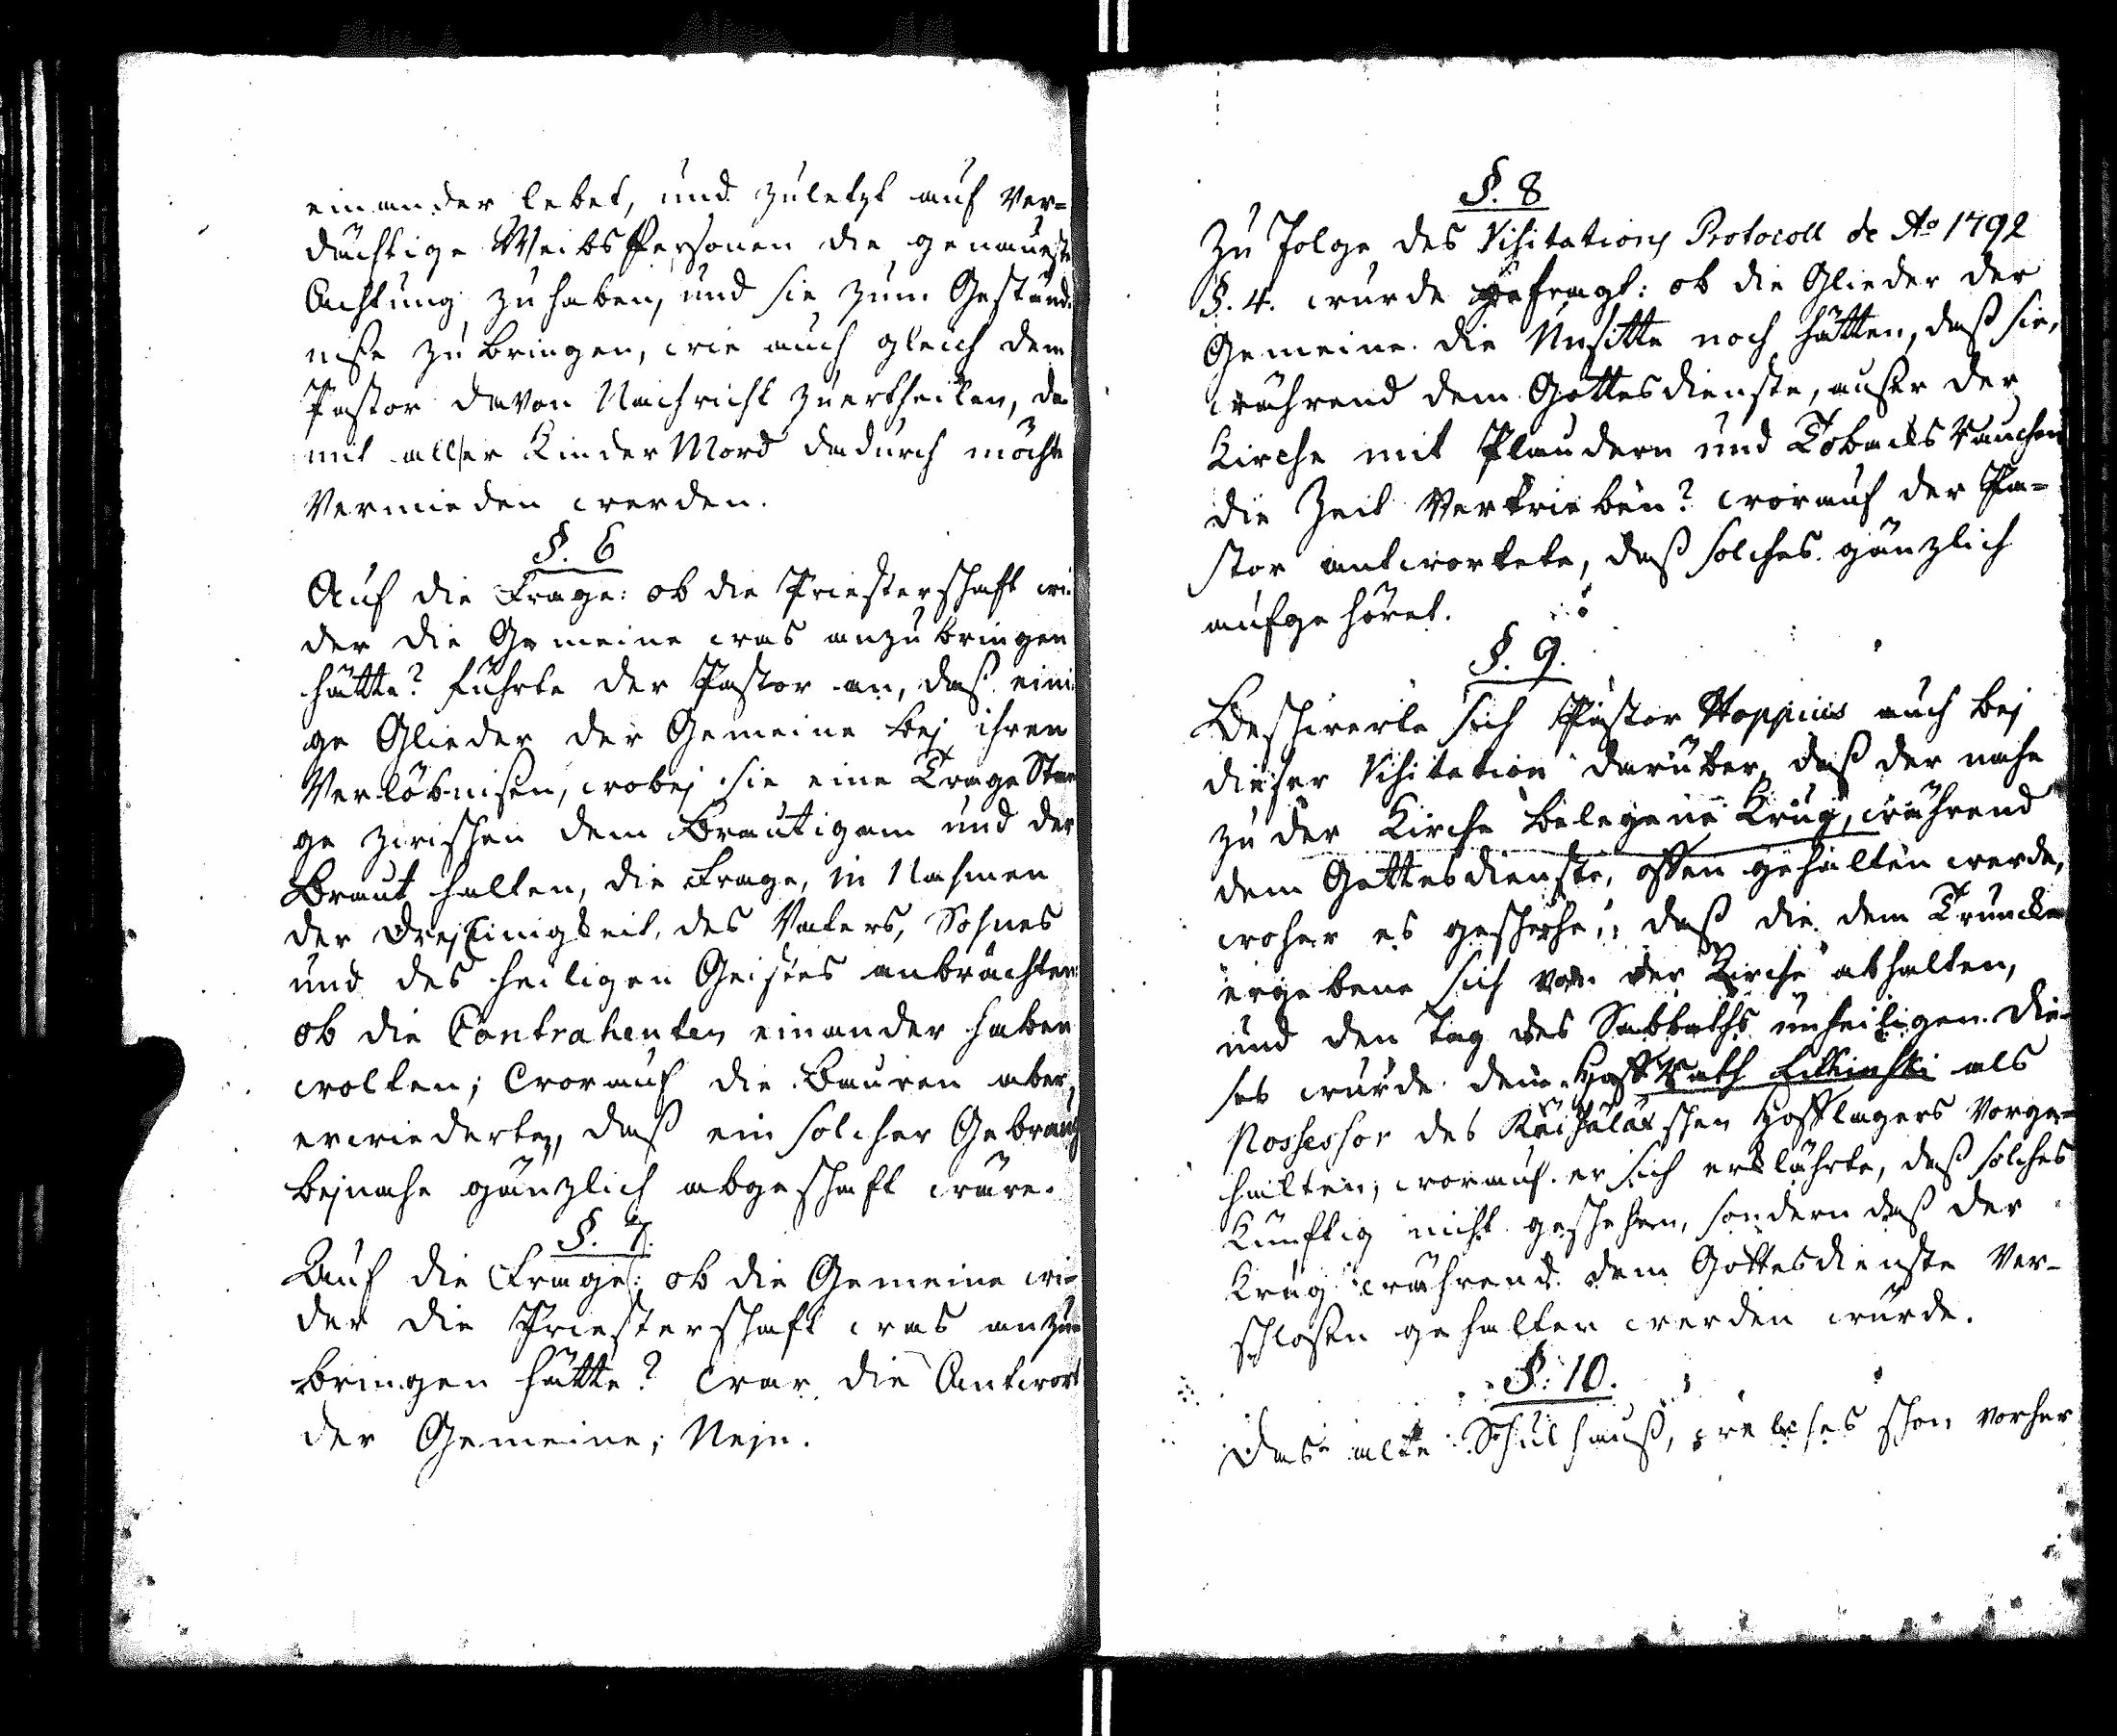 einander lebet, und zuletzt auf ver=
dächtige Weibs Personen die genaueste
Achtung zu haben, und sie zum Geständ=
niße zu bringen, wie auch gleich dem
Pastor davon Nachricht zuertheilen, da
mit aller Kinder Mord dadurch möchte
vermieden werden.
§. 6
Auf die Frage: ob die Priesterschaft wi=
der die Gemeine was anzubringen
hätte? führte der Pastor an, daß eini
ge Glieder der Gemeine bej ihren
Verlöbnißen, wobej sie eine Trage Stan
ge zwischen dem Bräutigam und der
Braut halten, die Frage, in Nahmen
der Drej Einigkeit, des Vaters, Sohnes
und des heiligen Geistes anbrächten:
ob die Contrahenten einander haben
wolten; Worauf die Bauren aber,
erwiederten, daß ein solcher Gebrauch
bejnahe gänzlich abgeschaft wäre.
§. 7.
Auf die Frage: ob die Gemeine wi=
der die Priesterschaft was anzu=
bringen hätte? War die Antwort
der Gemeine; Nejn.
§. 8
Zu Folge des Visitations Protocoll de Ao 1792
§. 4. wurde gefragt: ob die Glieder der
Gemeine die Unsitte noch hätten, daß sie,
während dem Gottesdienste, außer der
Kirche mit Plaudern und Tobacks Rauchen
die Zeit vertrieben? worauf der Pa=
stor antwortete, daß solches gänzlich
aufgehöret.
§. 9.
Beschwerte sich Pastor Hoppius auch bej
dieser Visitation darüber, daß der nahe
zu der Kirche belegene Krug, während
dem Gottesdienste, offen gehalten werde,
woher es geschehe, daß die dem Truncke
ergebene sich von der Kirche abhalten,
und den Tag des Sabbaths unheiligen. Die=
ses wurde dem Hoff Rath als
Possessor des schen Hofflagers vorge=
halten, worauf er sich erklährte, daß solches
Künftig nicht geschehen, sondern daß der
Krug während dem Gottesdienste ver=
schloßen gehalten werden würde.
§. 10.
Das alte Schulhauß, welches schon vorher